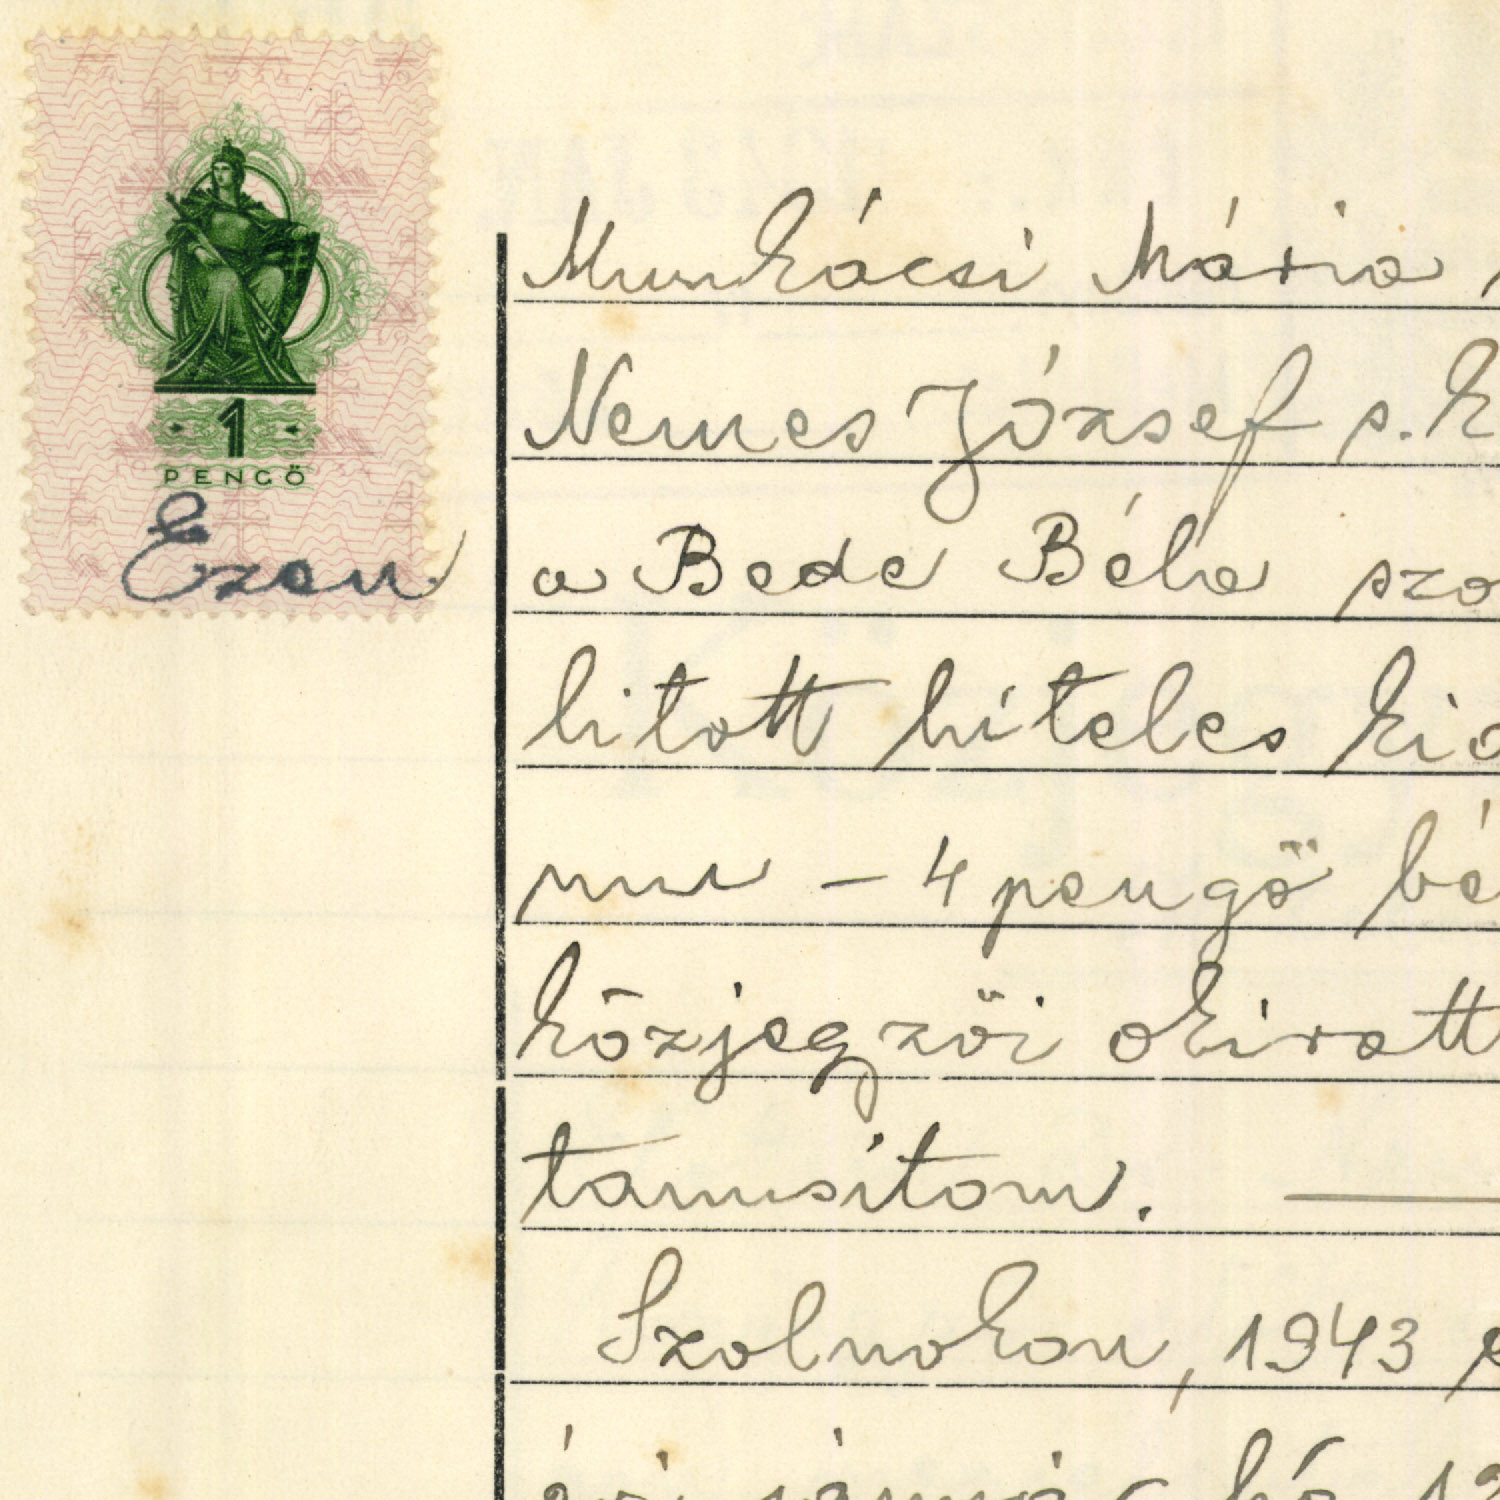 1
PENGŐ
Ezen
Munkácsi Mária
Nemes József s. k
a Bede Béla szo
lított hiteles kia
– 4 pengő bé
közjegyzői okiratt
tanusítom.
Szolnokon, 1943
évi január hó 12